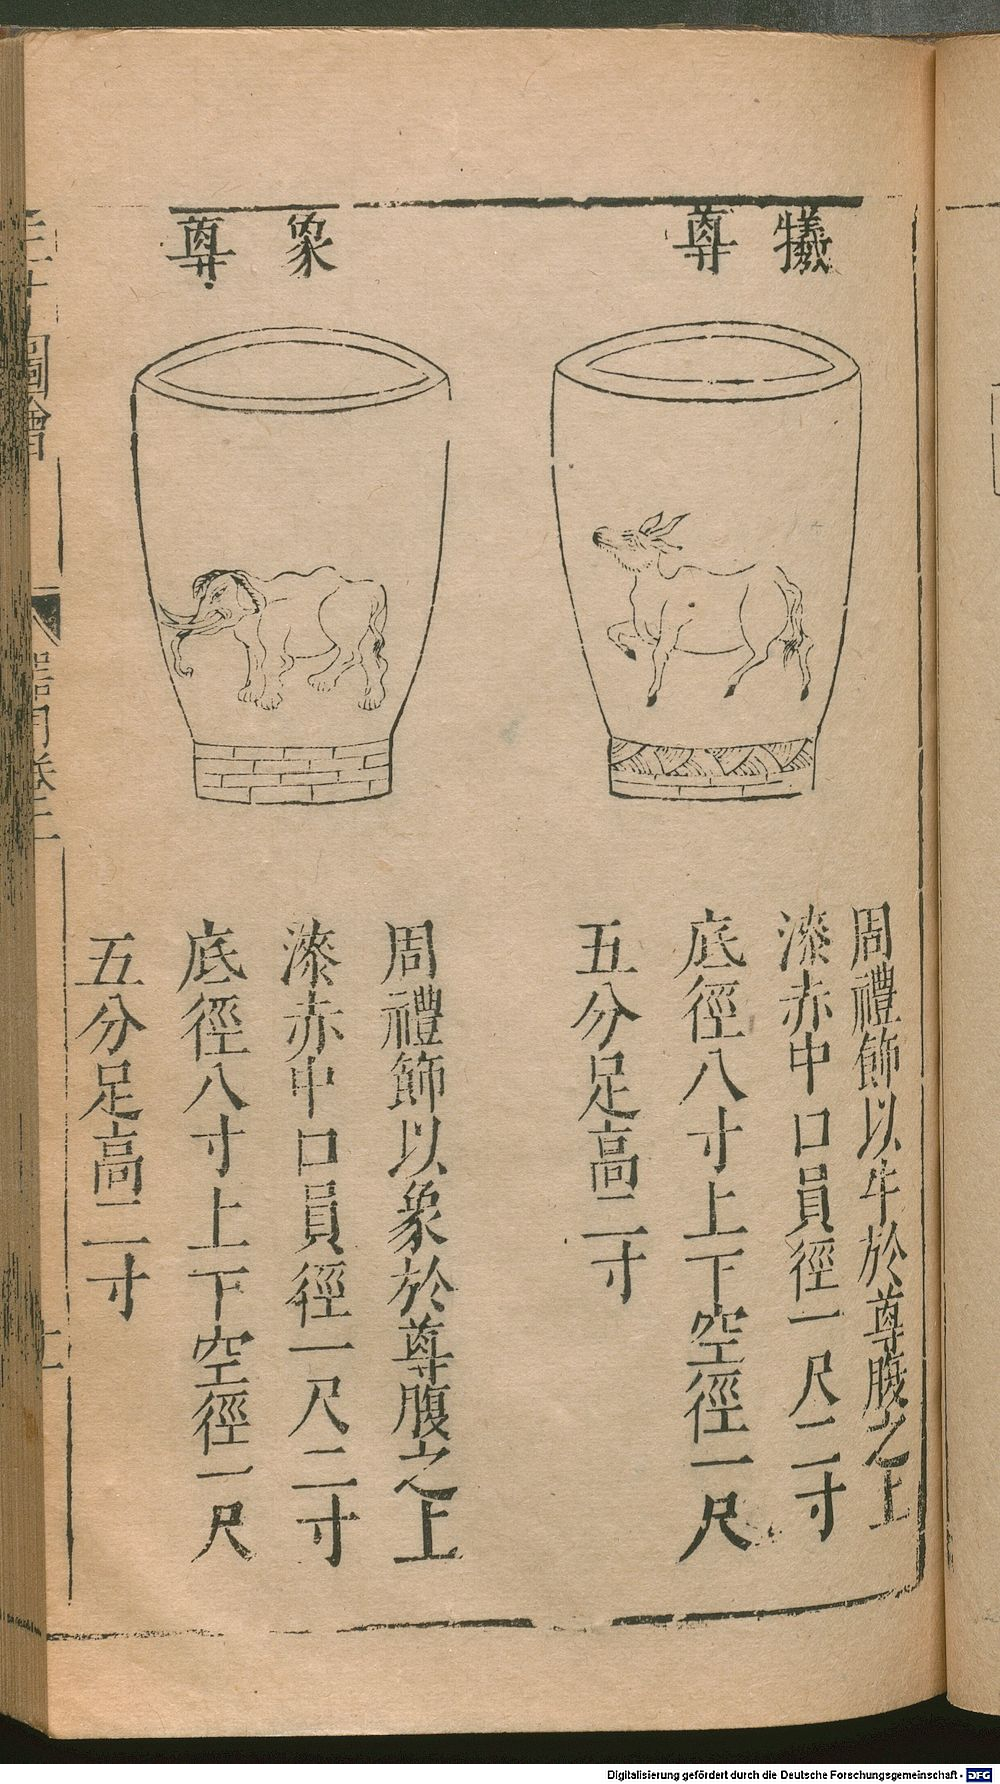 犧尊
周禮飾以牛於尊腹之上
漆赤中口員徑一尺二寸
底徑八寸上下空徑一尺
五分足高二寸
象尊
周禮飾以象於尊腹之上
漆赤中口員徑一尺二寸
底徑八寸上下空徑一尺
五分足高二寸
圖會
Digitalisierung gefördert durch die Deutsche Forschungsgemeinschaft - DFG